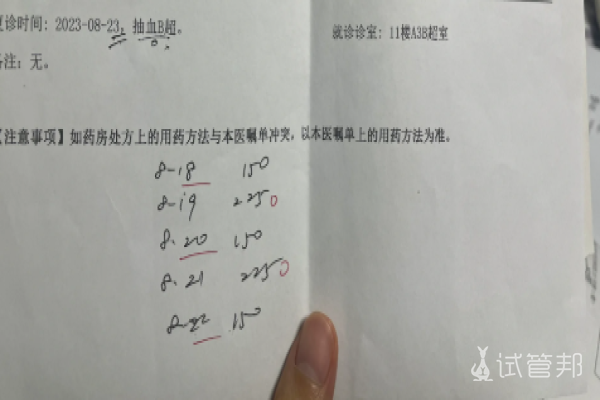 复诊时间: 2023-08-23, 抽血B超。
就诊诊室: 11楼A3B超室
备注: 无。
【注意事项】如药房处方上的用药方法与本医嘱单冲突, 以本医嘱单上的用药方法为准。
8-18 150
8-19 225
8.20 150
8.21 225
8-22 150
试管邦